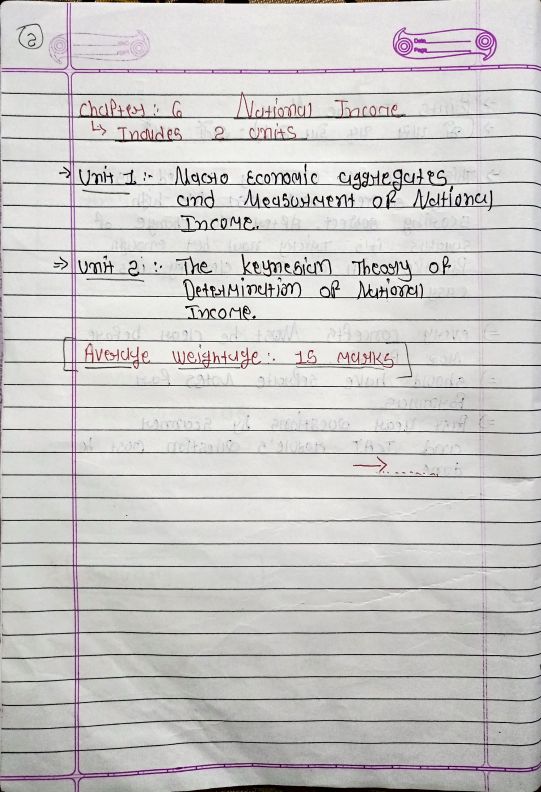 2
Date
Page
Chapter : 6 National Income
↳ Includes 2 units
→ Unit 1 :- Macro Economic aggregates
and Measurment of National
Income.
⇒ Unit 2 :- The keynesian Theory of
Determination of National
Income.
Average Weightage :- 15 marks
→ ........